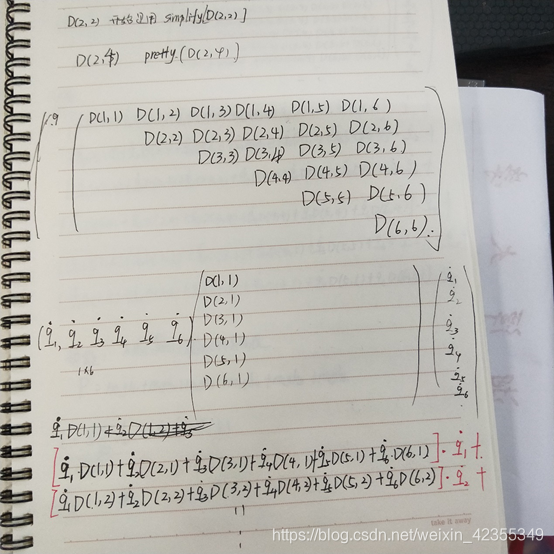 D(2,2) 开始运用 simplify[D(2,2)]
D(2,4) pretty.[D(2,4)]
D(1,1) D(1,2) D(1,3) D(1,4) D(1,5) D(1,6)
D(2,2) D(2,3) D(2,4) D(2,5) D(2,6)
D(3,3) D(3,4) D(3,5) D(3,6)
D(4,4) D(4,5) D(4,6)
D(5,5) D(5,6)
D(6,6)
(q̇1, q̇2 q̇3 q̇4 q̇5 q̇6)
1×6
D(1,1)
D(2,1)
D(3,1)
D(4,1)
D(5,1)
D(6,1)
q̇1
q̇2
q̇3
q̇4
q̇5
q̇6
q̇1 D(1,1)+q̇2D(1,2)+q̇3
[q̇1·D(1,1)+q̇2D(2,1)+q̇3D(3,1)+q̇4D(4,1)+q̇5D(5,1)+q̇6·D(6,1)]·q̇1+
[q̇1D(1,2)+q̇2D(2,2)+q̇3D(3,2)+q̇4D(4,2)+q̇5D(5,2)+q̇6D(6,2)]·q̇2+
take it away
https://blog.csdn.net/weixin_42355349